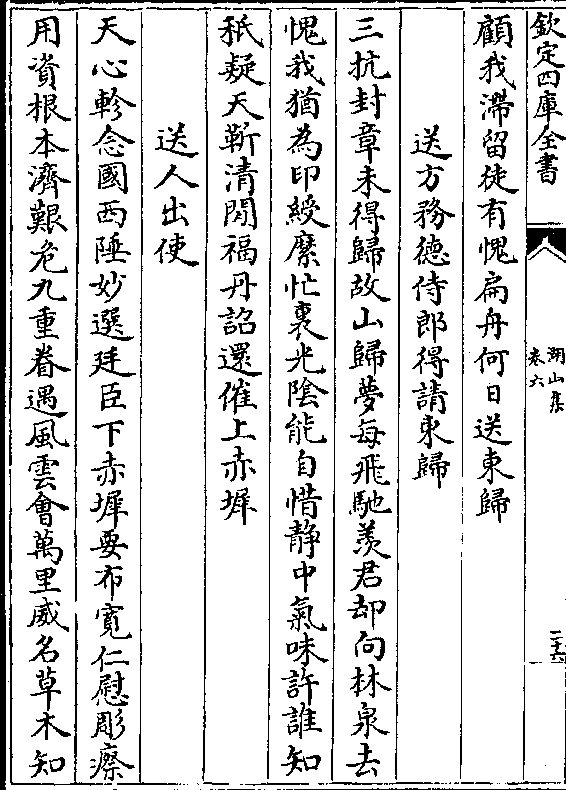 欽定四庫全書
湖山集
卷六
二十六
顧我滯留徒有愧扁舟何日送東歸
送方務德侍郎得請東歸
三抗封章未得歸故山歸夢每飛馳羨君却向林泉去
愧我猶為印綬縻忙裏光陰能自惜静中氣味許誰知
秖疑天靳清閒福丹詔還催上赤墀
送人出使
天心軫念國西陲妙選廷臣下赤墀要布寛仁慰彫瘵
用資根本濟艱危九重眷遇風雲會萬里威名草木知